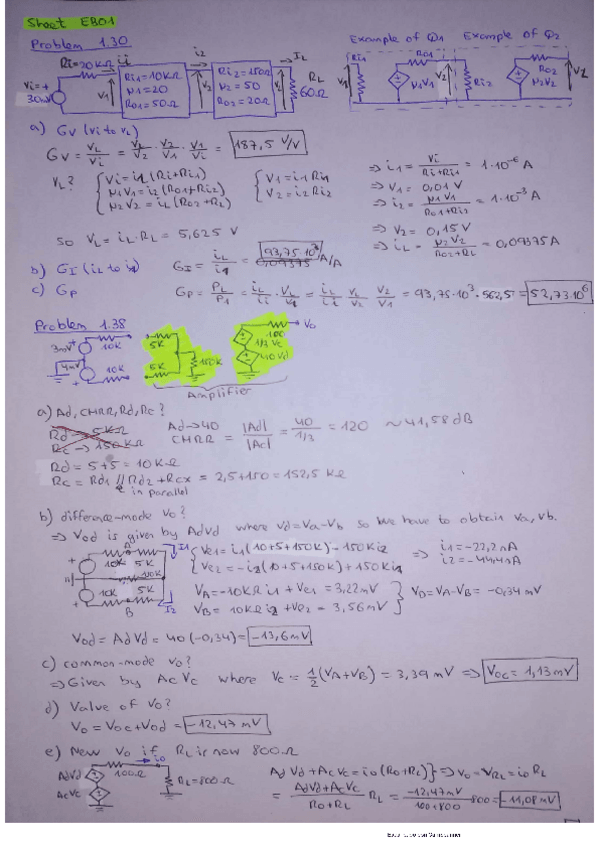 Sheet EB01
Problem 1.30
Example of Q1 Example of Q2
Ri=20KΩ i1 i2 IL
Vi=+ 30mV
V1
Ri1=10KΩ
μ1=20
Ro1=50Ω
V2
Ri2=150Ω
μ2=50
Ro2=20Ω
RL 60Ω
V1 Ri1 Ro1 μ1V1 V2 Ri2 Ro2 μ2V2
a) Gv (vi to vL)
Gv = VL/Vi = VL/V2 · V2/V1 · V1/Vi = 187,5 V/V
VL? { Vi=i1(Ri+Ri1)
μ1V1=i2(Ro1+Ri2)
μ2V2=iL(Ro2+RL)
{ V1=i1Ri1
V2=i2Ri2
⇒ i1 = Vi/(Ri+Ri1) = 1·10⁻⁶ A
⇒ V1 = 0,01 V
⇒ i2 = μ1V1/(Ro1+Ri2) = 1·10⁻³ A
⇒ V2 = 0,15 V
⇒ iL = μ2V2/(Ro2+RL) = 0,09375A
so VL = iL·RL = 5,625 V
b) GI (iL to i1) GI = iL/i1 = 93,75·10³ A/A
c) Gp Gp = PL/P1 = iL/i1 · VL/V1 = iL/i1 VL/V2 V2/V1 = 93,75·10³·562,5 = 52,73·10⁶
Problem 1.38
3mV 10K 4mV 10K
5K 5K 150K
100 1/3 Vc 40Vd Vo
Amplifier
a) Ad, CMRR, Rd, Rc?
Rd → 5KΩ
Rc → 150KΩ
Ad→40
CMRR = |Ad|/|Ac| = 40/1/3 = 120 ~41,58 dB
Rd = 5+5 = 10KΩ
Rc = Rd1 // Rd2 + Rcx = 2,5+150 = 152,5 KΩ
in parallel
b) difference-mode Vo?
⇒ Vod is given by AdVd where Vd=Va-Vb so we have to obtain Va, Vb.
A I1 10K 5K 150K 10K 5K B I2
{ Ve1 = i1(10+5+150K) - 150Ki2
Ve2 = -i2(10+5+150K) + 150Ki1
⇒ i1=-22,2nA
i2=-44,4nA
VA = -10KΩ i1 + Ve1 = 3,22mV
VB = 10KΩ i2 + Ve2 = 3,56mV
} VD = VA-VB = -0,34 mV
Vod = AdVd = 40(-0,34) = -13,6mV
c) common-mode Vo?
⇒ Given by AcVc where Vc = 1/2(VA+VB) = 3,39 mV ⇒ Voc = 1,13mV
d) Value of Vo?
Vo = Voc+Vod = -12,47 mV
e) New Vo if RL is now 800Ω
io 100Ω AdVd AcVc RL=800Ω
AdVd+AcVc = io(Ro+RL)} ⇒ Vo=VRL=io RL
= (AdVd+AcVc)/(Ro+RL) RL = -12,47mV/(100+800) 800 = -11,08mV